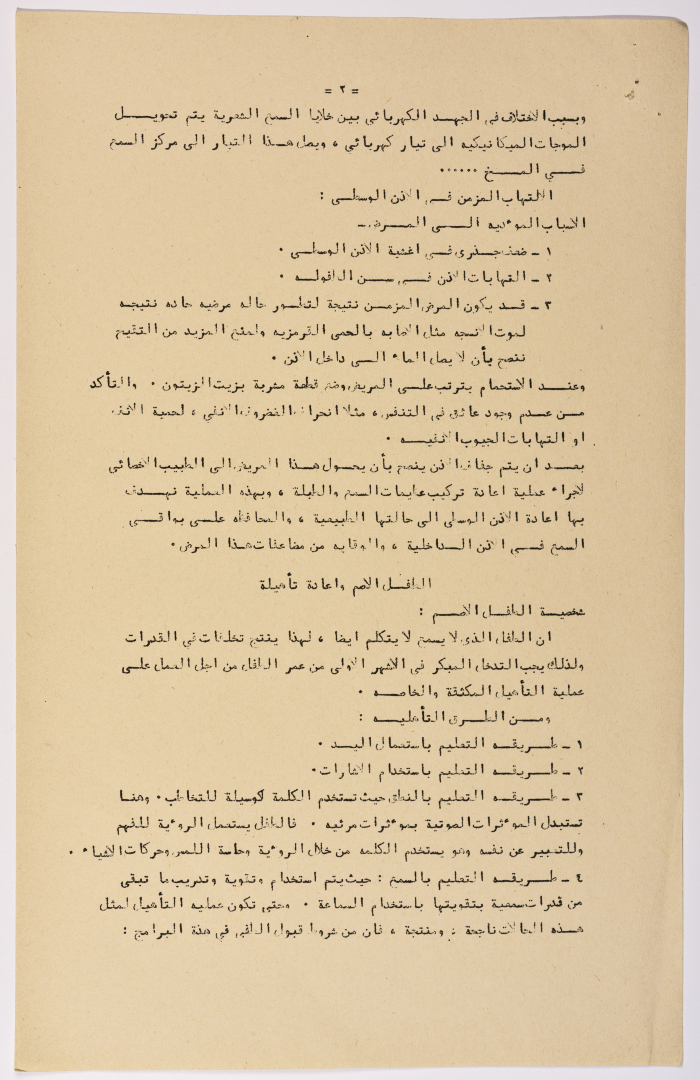 = ٢ =
وبسبب الاختلاف في الجهد الكهربائي بين خلايا السمع الشعرية يتم تحويل
الموجات الميكانيكيه الى تيار كهربائي ، ويصل هذا التيار الى مركز السمع
في المخ ......
الالتهاب المزمن في الاذن الوسطى :
الاسباب المؤديه الى المرض ـ
١ ـ ضعف جذري في اغشية الاذن الوسطى .
٢ ـ التهابات الاذن في سن الطفوله .
٣ ـ قد يكون المرض المزمن نتيجة لتطور حاله مرضيه حاده نتيجه
لموت الانسجه مثل الاصابه بالحمى القرمزيه ولمنع المزيد من التقيح
ننصح بأن لا يصل الماء الى داخل الاذن .
وعند الاستحمام يترتب على المريض وضع قطعة مشربة بزيت الزيتون . والتأكد
من عدم وجود عائق في التنفس ، مثلا انحراف الغضروف الانفي ، لحمية الانف
او التهابات الجيوب الانفيه .
بعد ان يتم جفاف الاذن ينصح بأن يحول هذا المريض الى الطبيب الاخصائي
لاجراء عملية اعادة تركيب عظيمات السمع والطبلة ، وبهذه العملية نهدف
بها اعادة الاذن الوسطى الى حالتها الطبيعية ، والمحافظه على بواقي
السمع في الاذن الداخلية ، والوقايه من مضاعفات هذا المرض .
الطفل الاصم واعادة تأهيلة
شخصية الطفل الاصم :
ان الطفل الذي لا يسمع لا يتكلم ايضا ، لهذا ينتج تخلفات في القدرات
ولذلك يجب التدخل المبكر في الاشهر الاولى من عمر الطفل من اجل العمل على
عملية التأهيل المكثفة والخاصه .
ومن الطرق التأهليه :
١ ـ طريقه التعليم باستعمال اليد .
٢ ـ طريقه التعليم باستخدام الاشارات .
٣ ـ طريقه التعليم بالنطق حيث تستخدم الكلمة كوسيلة للتخاطب . وهنا
تستبدل الموءثرات الصوتية بموءثرات مرئيه . فالطفل يستعمل الروءية للفهم
وللتعبير عن نفسه وهو يستخدم الكلمه من خلال الروءية وحاسة اللمس وحركات الاشياء .
٤ ـ طريقه التعليم بالسمع : حيث يتم استخدام وتقوية وتدريب ما تبقى
من قدرات سمعية بتقويتها باستخدام السماعة . وحتى تكون عمليه التأهيل لمثل
هذه الحالات ناجحة ومنتجة ، فان من شروط قبول الطفل في هذة البرامج :